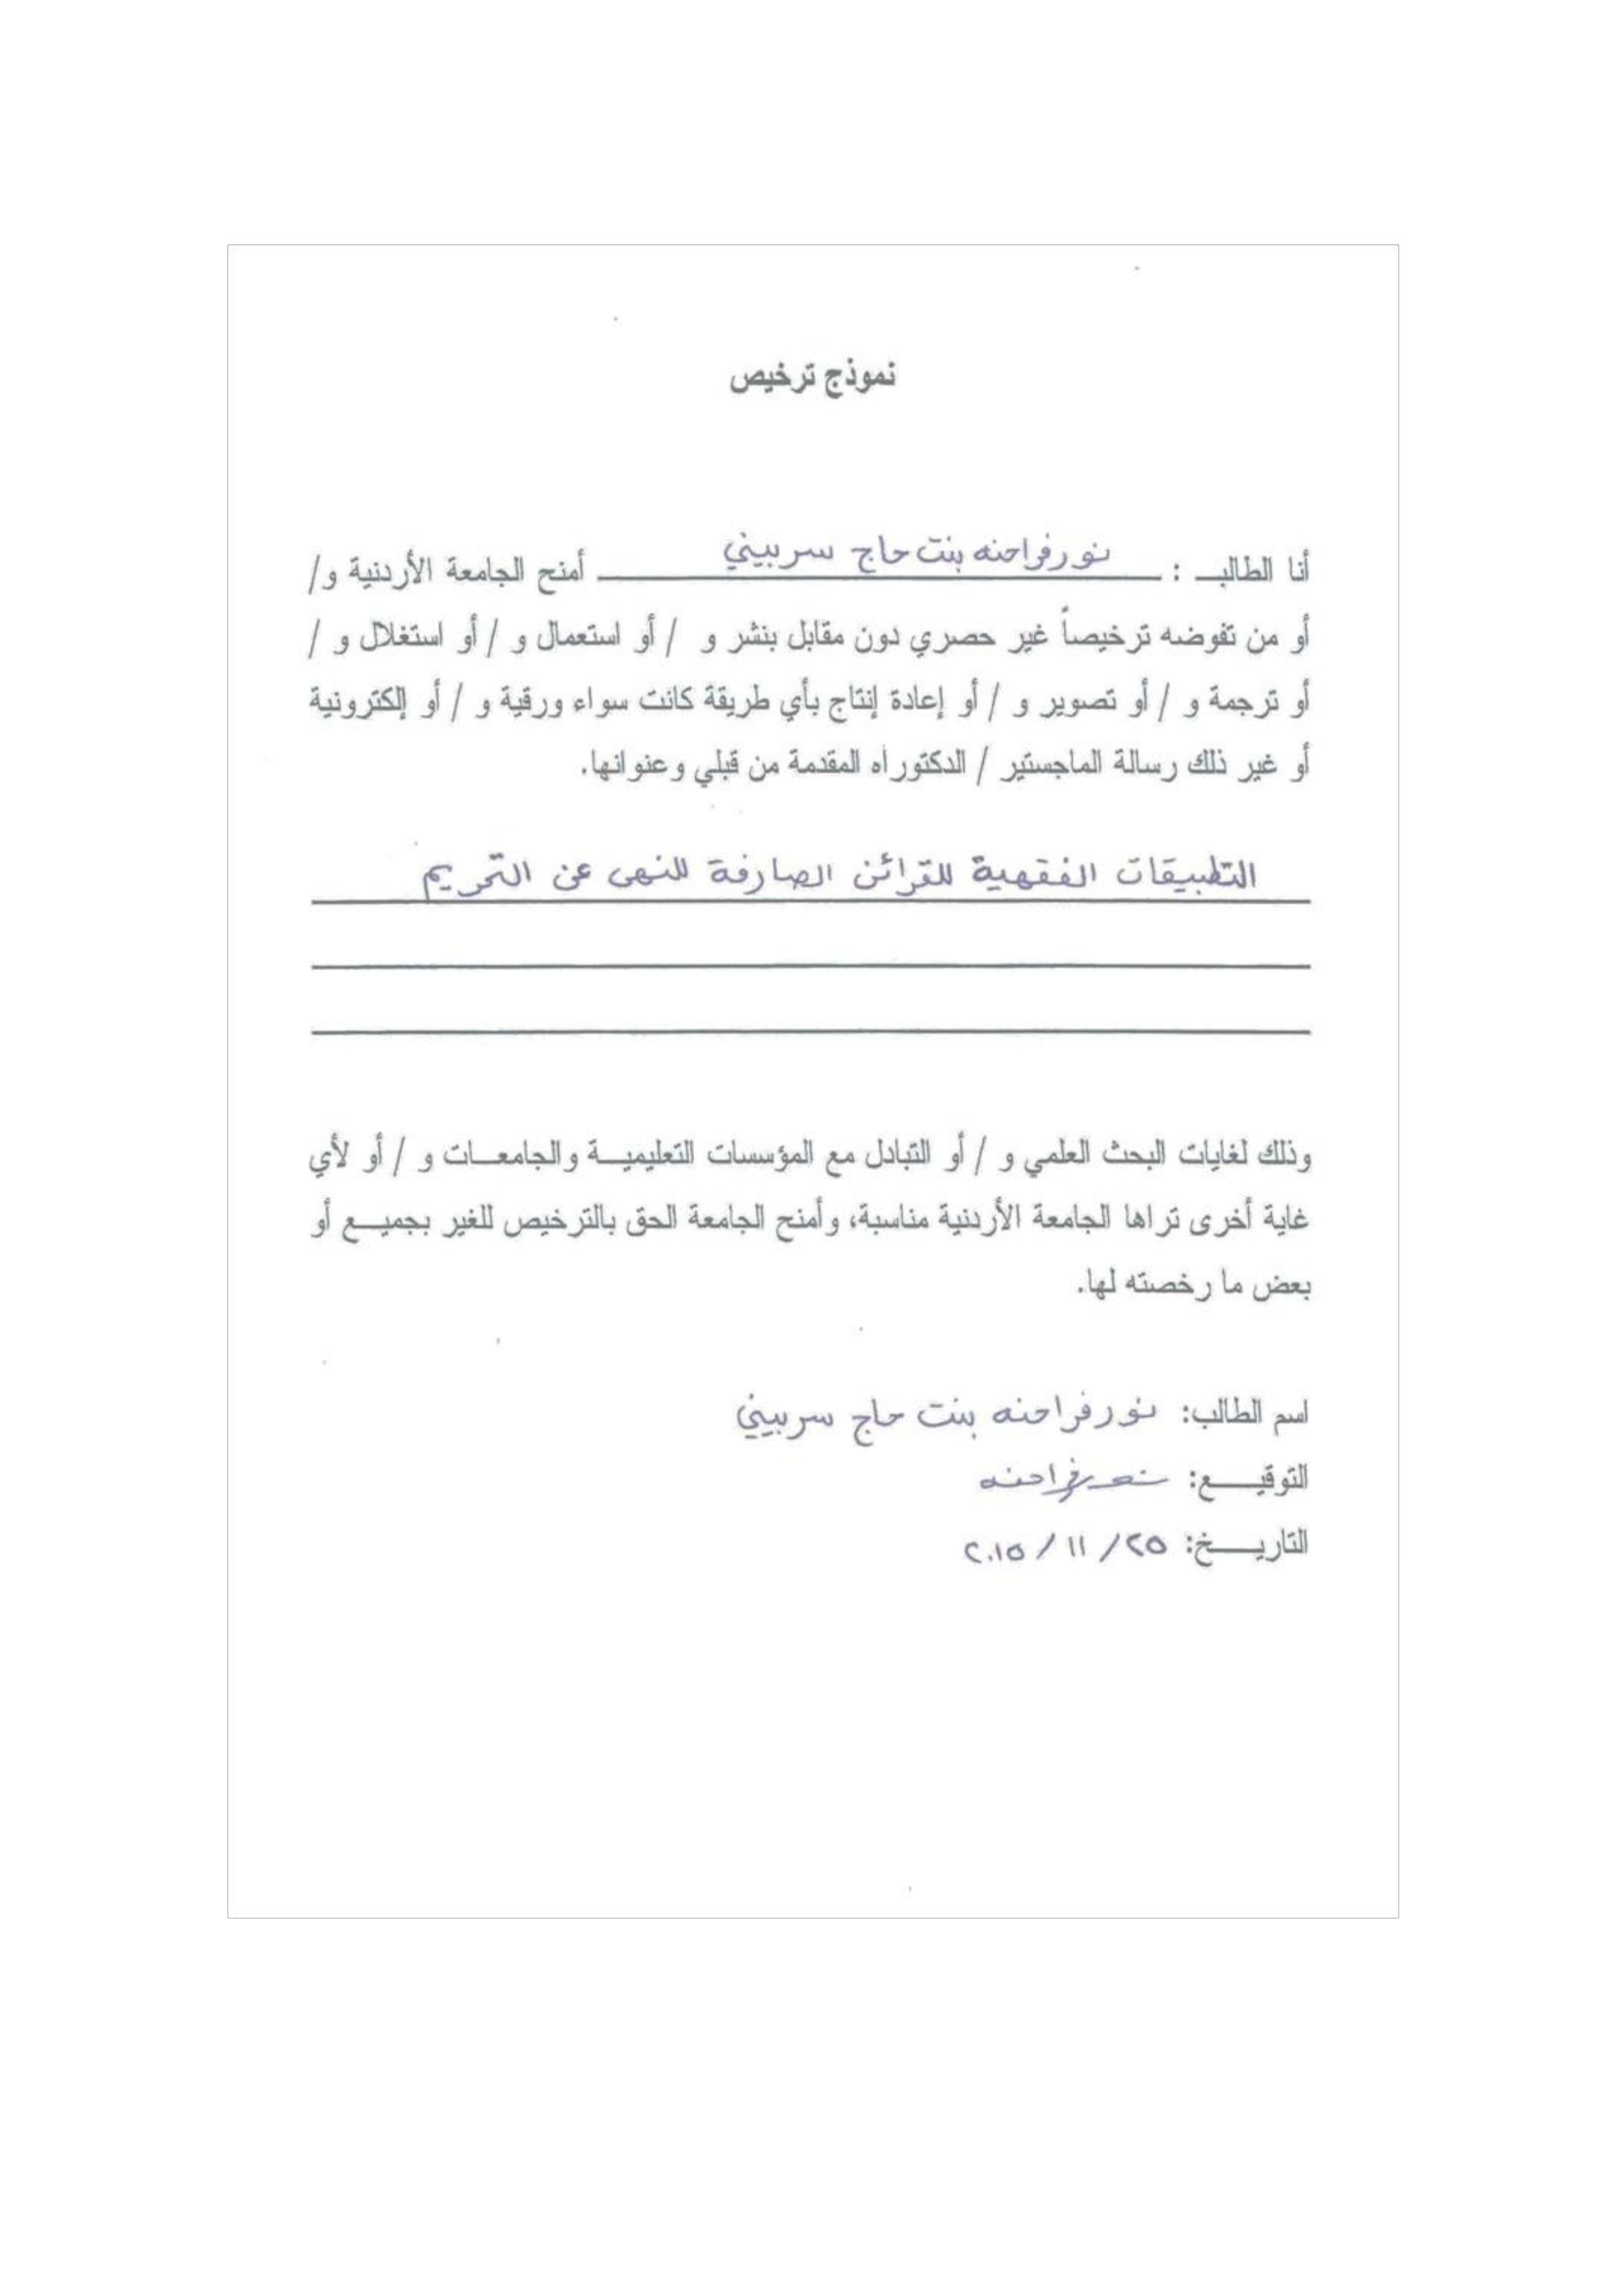 نموذج ترخيص
أنا الطالب : نور فراحنه بنت حاج سربيني أمنح الجامعة الأردنية و/
أو من تفوضه ترخيصاً غير حصري دون مقابل بنشر و / أو استعمال و / أو استغلال و /
أو ترجمة و / أو تصوير و / أو إعادة إنتاج بأي طريقة كانت سواء ورقية و / أو إلكترونية
أو غير ذلك رسالة الماجستير / الدكتوراه المقدمة من قبلي وعنوانها.
التطبيقات الفقهية للقرائن الصارفة للنهى عن التحريم
وذلك لغايات البحث العلمي و / أو التبادل مع المؤسسات التعليمية والجامعات و / أو لأي
غاية أخرى تراها الجامعة الأردنية مناسبة، وأمنح الجامعة الحق بالترخيص للغير بجميع أو
بعض ما رخصته لها.
اسم الطالب: نور فراحنه بنت حاج سربيني
التوقيع: نور فراحنه
التاريخ: ٢٥/ ١١ / ٢٠١٥